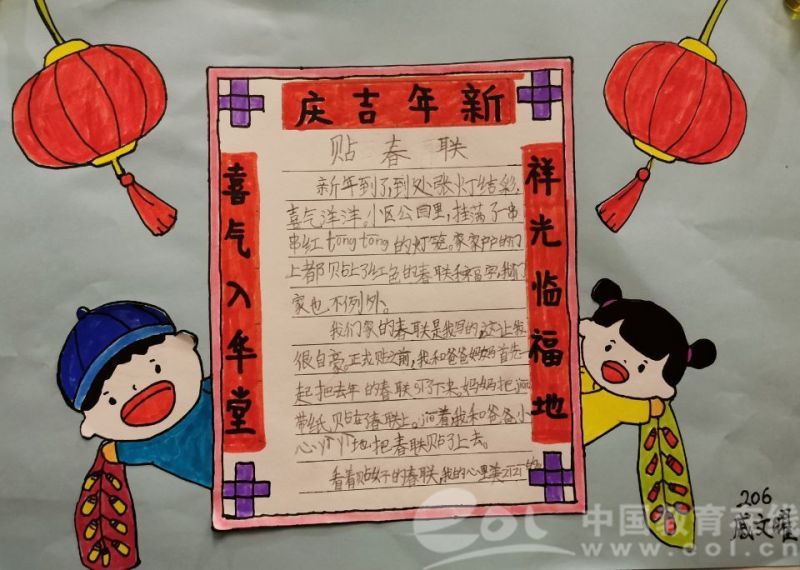 新年吉庆
祥光临福地
喜气入华堂
贴春联
新年到了,到处张灯结彩,
喜气洋洋。小区公园里,挂满了一串
串红tōng tōng的灯笼。家家户户的门
上都贴上了红色的春联和福字,我们
家也不例外。
我们家的春联是我写的,这让我
很自豪。正式贴之前,我和爸爸妈妈首先一
起把去年的春联 了下来。妈妈把
带纸贴在春联上。 着我和爸爸小
心 地把春联贴了上去。
看着贴好的春联,我的心里美 的
206
文
eol 中国教育在线
www.eol.cn